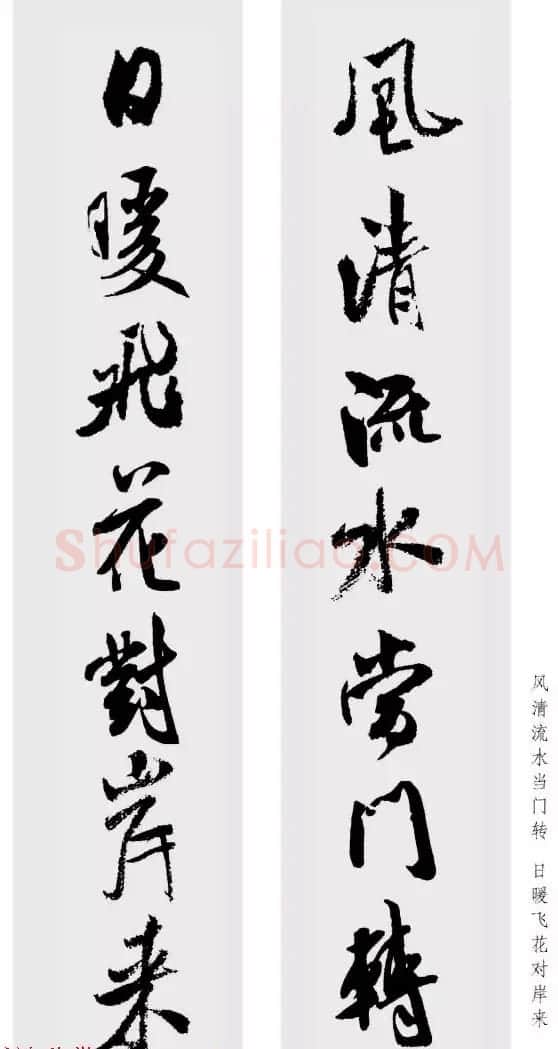 風清流水當門轉
日暖飛花對岸来
风清流水当门转 日暖飞花对岸来
Shufaziliao.COM